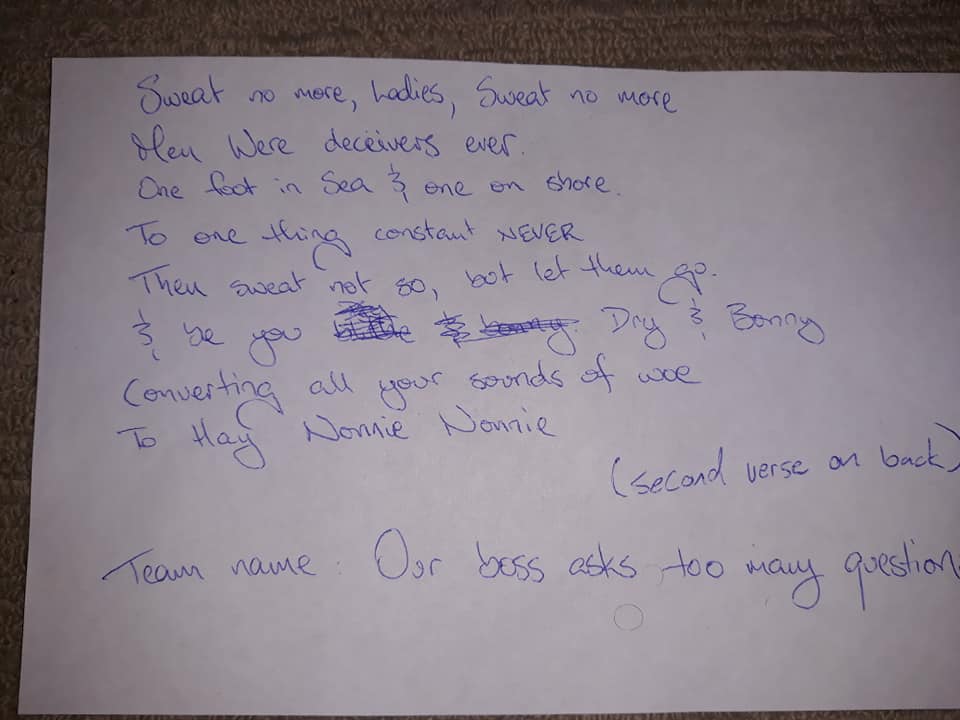 Sweat no more, Ladies, Sweat no more
Men Were deceivers ever.
One foot in Sea & one on shore.
To one thing constant NEVER
Then sweat not so, but let them go.
& be you & bonny Dry & Bonny
Converting all your sounds of woe
To Hay Nonnie Nonnie
(second verse on back)
Team name: Our boss asks too many question